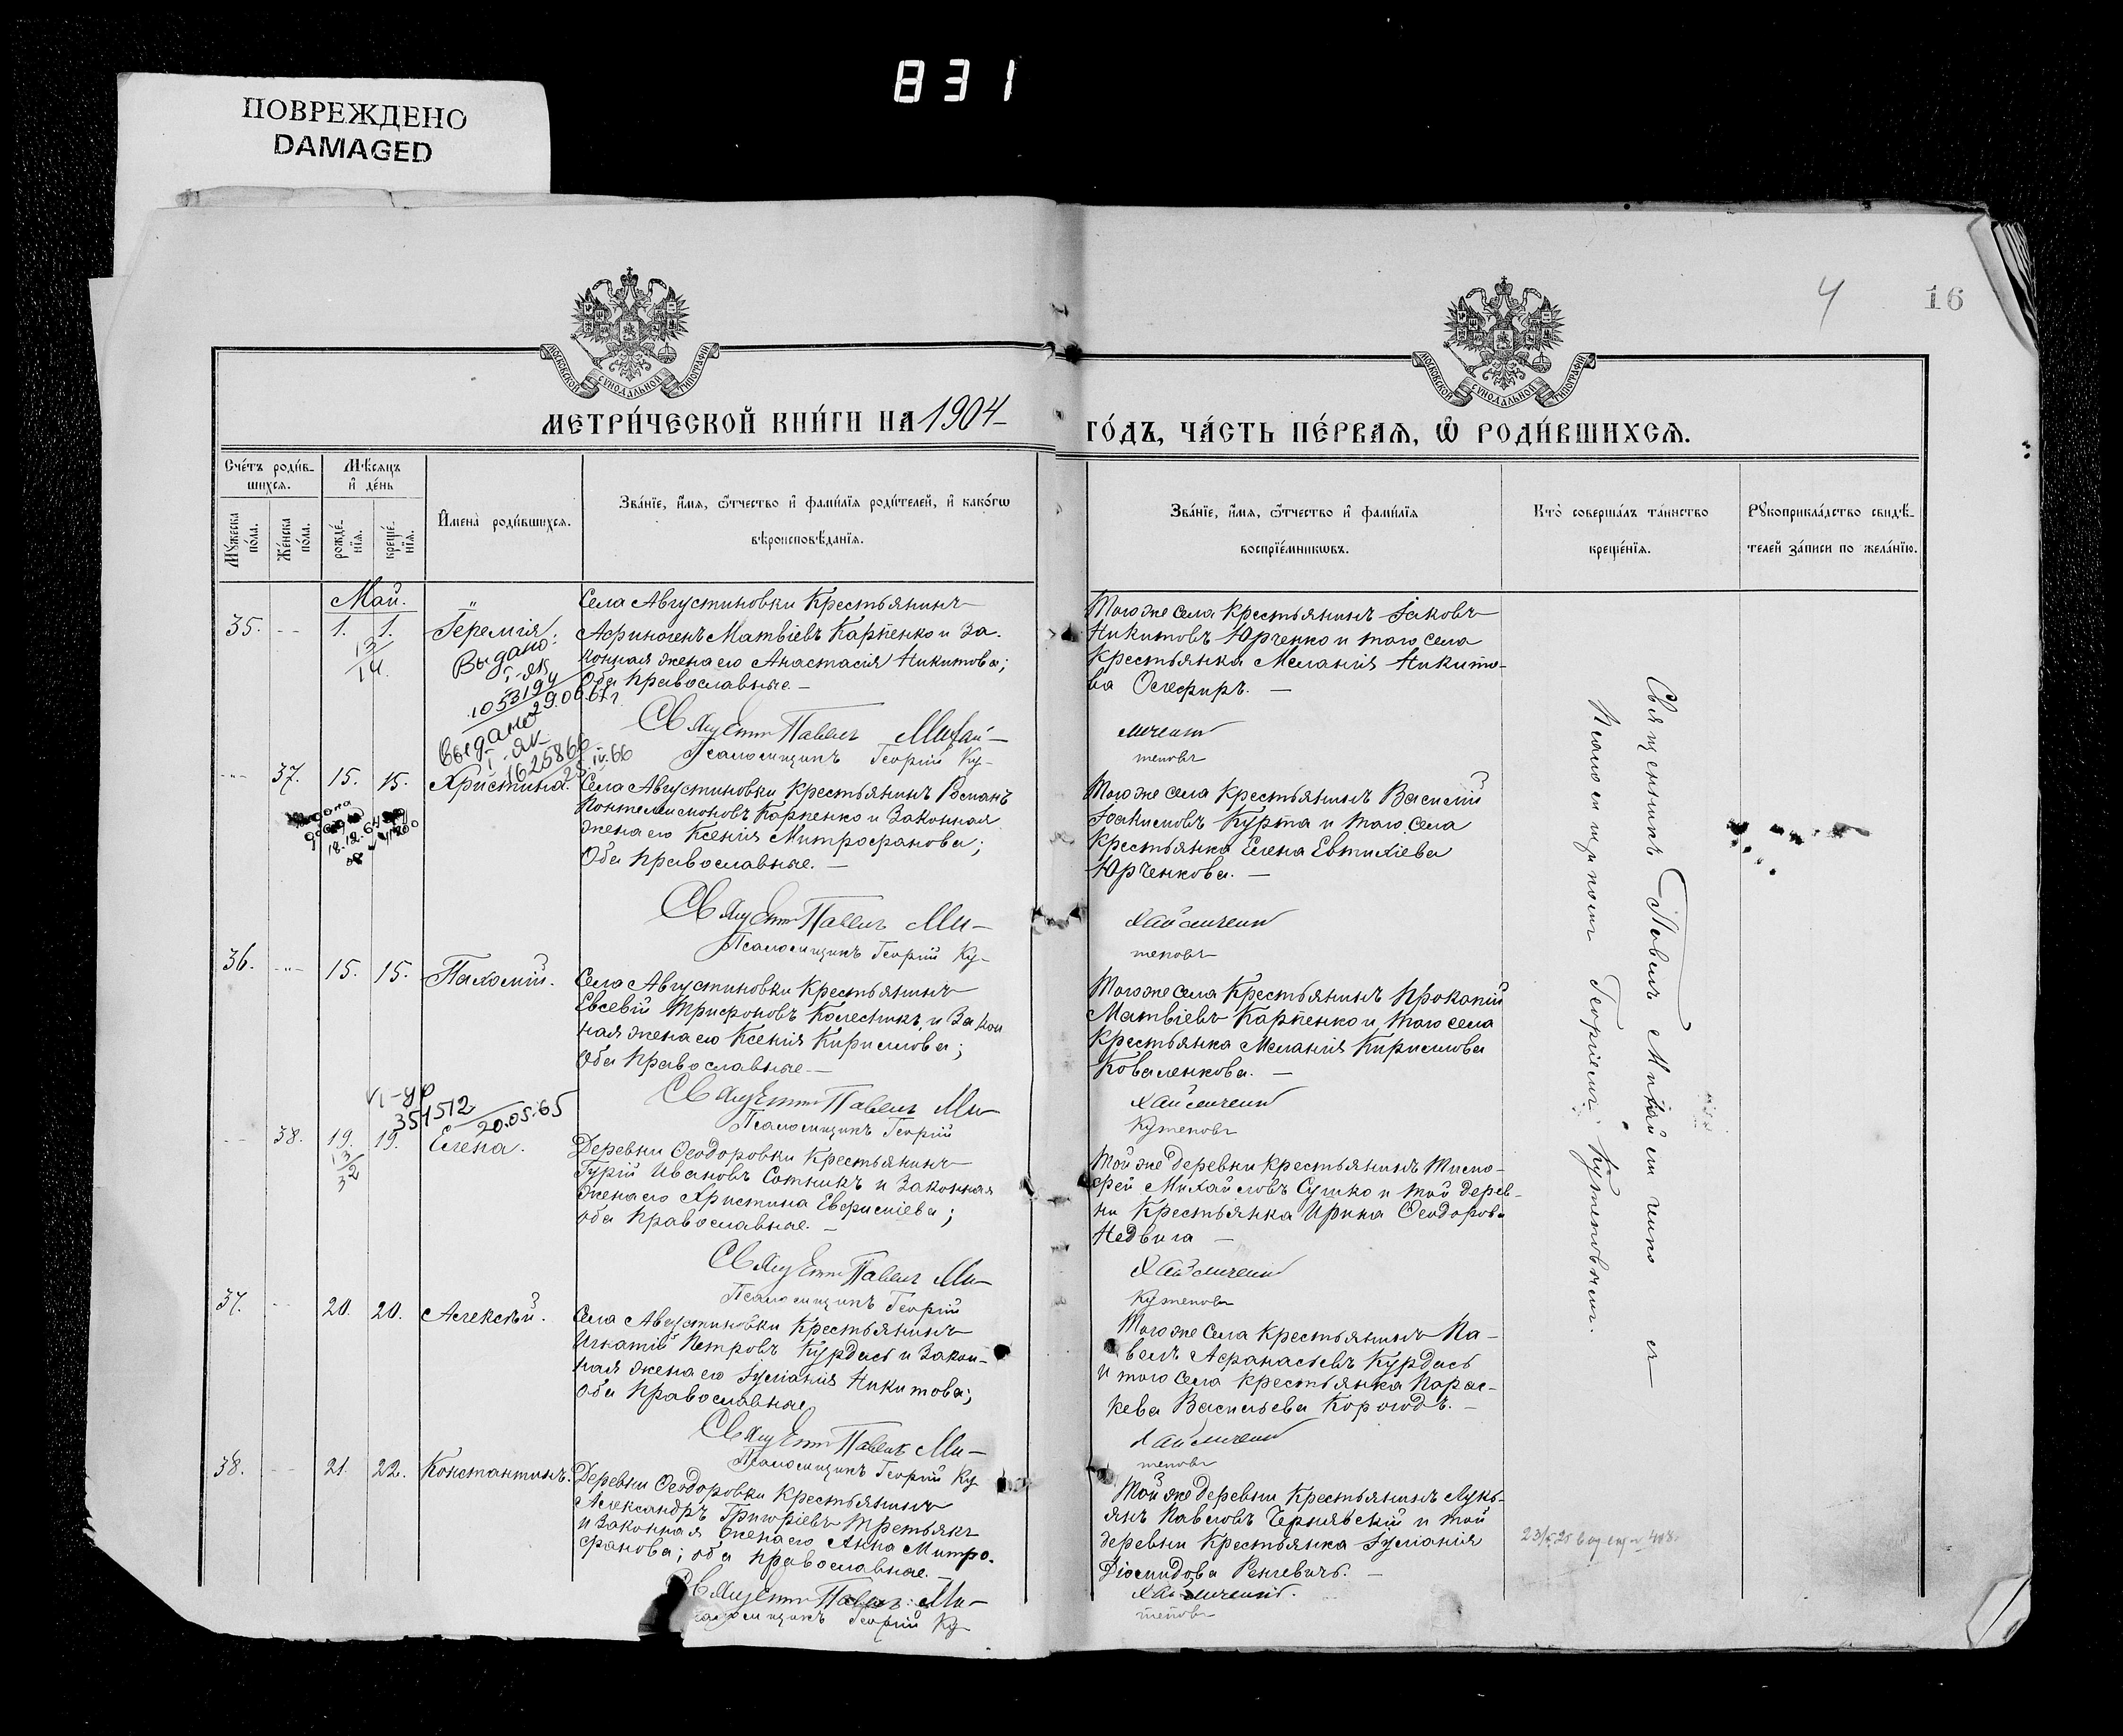 831
ПОВРЕЖДЕНО
DAMAGED
4
16
МОСКОВСКОЙ СУНОДАЛЬНОЙ ТИПОГРАФІИ
МОСКОВСКОЙ СУНОДАЛЬНОЙ ТИПОГРАФІИ
МЕТРИ́ЧЕСКОЙ КНИ́ГИ НА 1904
ГО́ДЪ, ЧА́СТЬ ПЕ́РВАЯ, Ѡ РОДИ́ВШИХСЯ.
Сче́тъ роди́в-
шихся.
Мѣсяцъ
и де́нь
Му́жеска по́ла.
Же́нска по́ла.
рожде́нїя.
креще́нїя.
И́мена роди́вшихся.
Зва́нїе, и́мя, ѻ҆́тчество и фами́лїя роди́телей, и како́гѡ
вѣроисповѣ́данїя.
Зва́нїе, и́мя, ѻ҆́тчество и фами́лїя
воспрїе́мникѡвъ.
Кто̀ соверша́лъ та́инство
креще́нїя.
Рꙋкоприкла́дство свидѣ́-
телей за́писи по жела́нїю.
Май.
35. 1. 1. Іеремія
13/14
Выдано:
I-ЯК
1053194
29.06.67г.
Выдано
I-ЯК
1625866
28.IV.66
Села Августиновки Крестьянинъ
Афиногенъ Матвіевъ Карпенко и За-
конная жена его Анастасія Никитова;
Оба православные. —
Священ Павелъ Михай-
Псаломщикъ Георгій Ку-
Того же села Крестьянинъ Іаковъ
Никитовъ Юрченко и того села
Крестьянка Меланія Никито-
ва
личенко
теповъ
37. 15. 15. Христина.
18.12.64
Села Августиновки Крестьянинъ Романъ
Понтелимоновъ Карпенко и Законная
жена его Ксенія Митрофанова;
Оба православные. —
Священ Павелъ Ми-
Псаломщикъ Георгій Ку-
Того же села Крестьянинъ Василій
Іоакимовъ Курта и того села
Крестьянка Елена Евтихіева
Юрченкова. —
хайличенко
теповъ
36. 15. 15. Пахомій.
Села Августиновки Крестьянинъ
Евсевій Трифоновъ Колесникъ, и Закон
ная жена его Ксенія Кириллова;
Оба православные —
Священ Павелъ Ми-
Псаломщикъ Георгій
Того же села Крестьянинъ Прокопій
Матвіевъ Карпенко и того села
Крестьянка Меланія Кириллова
Коваленкова. —
хайличенко
Кутеповъ
VI-УР
351512
20.05.65
38. 19. 19. Елена.
13/32
Деревни Ѳеодоровки Крестьянинъ
Гурій Ивановъ Сотникъ и Законная
жена его Христина Евфиміева;
оба православные. —
Священ Павелъ Ми-
Псаломщикъ Георгій
Той же деревни крестьянинъ Тимо-
фей Михайловъ Сушко и той дерев-
ни Крестьянка Ирина Ѳеодорова
Недвига —
хайличенко
Кутеповъ
37. 20. 20. Алексѣй.
Села Августиновки Крестьянинъ
Игнатій Петровъ Курдась и Закон-
ная жена его Іуліанія Никитова;
Оба православные,
Священ Павелъ Ми-
Псаломщикъ Георгій Ку
Того же села Крестьянинъ Па-
велъ Афанасьевъ Курдась
и того села крестьянка Парас-
кева Васильева Король. —
хайличенко
теповъ
38. 21. 22. Константинъ.
Деревни Ѳеодоровки Крестьянинъ
Александръ Григоріевъ Третьякъ
и Законная жена его Анна Митро-
фанова; оба православные. —
Священ Павелъ Ми-
Псаломщикъ Георгій Ку-
Той же деревни Крестьянинъ Лукь-
янъ Павловъ Чернявскій и той
деревни Крестьянка Іуліанія
Діомидова Ренгевичъ. —
хайличенко.
теповъ
Священникъ Павелъ Михайличенко съ
Псаломщикомъ Георгіемъ Кутеповымъ.